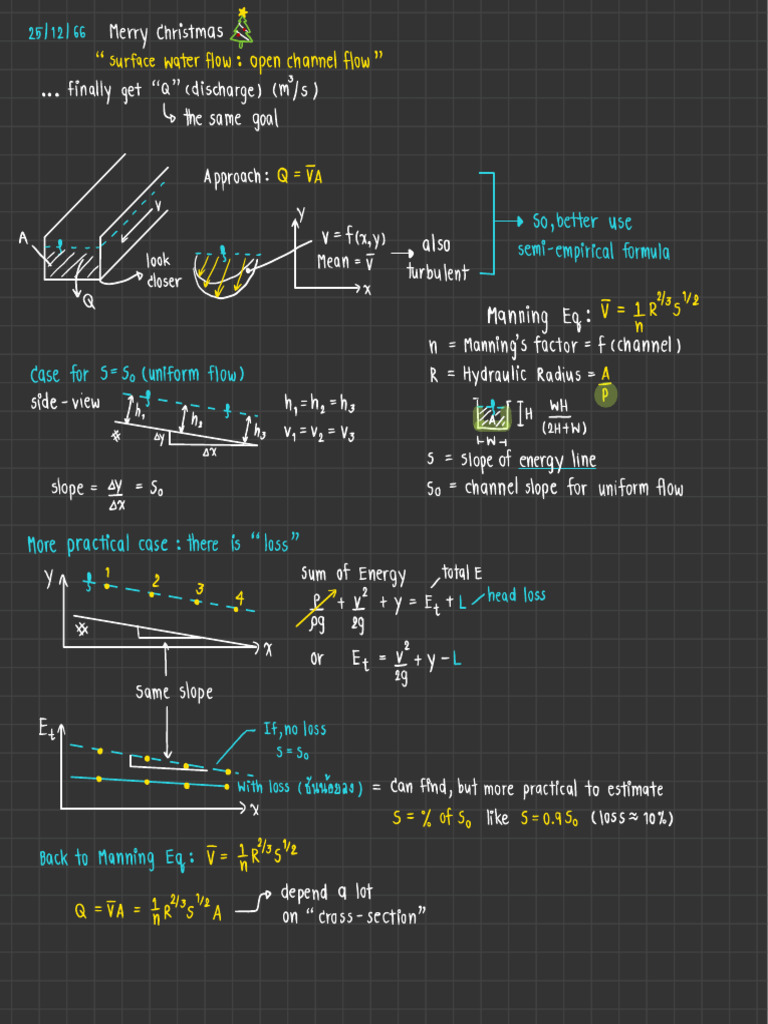 25/12/66 Merry Christmas
"surface water flow : open channel flow"
... finally get "Q" (discharge) (m³/s)
↳ the same goal
Approach : Q = V̄A
A
V
Q
look closer
y
x
v = f(x,y)
Mean = v̄
→ also turbulent
→ so, better use
semi-empirical formula
Manning Eq : V̄ = 1/n R^2/3 S^1/2
n = Manning's factor = f (channel)
R = Hydraulic Radius = A/P
A
H
W
WH/(2H+W)
S = slope of energy line
S₀ = channel slope for uniform flow
Case for S = S₀ (uniform flow)
side-view
h₁
h₂
h₃
Δy
Δx
h₁ = h₂ = h₃
v₁ = v₂ = v₃
slope = Δy/Δx = S₀
More practical case : there is "loss"
y
1
2
3
4
x
Sum of Energy
total E
P/ρg + v²/2g + y = Et + L
head loss
or Et = v²/2g + y - L
Same slope
Et
x
If, no loss
S = S₀
With loss (ชันน้อยลง) = Can find, but more practical to estimate
S = % of S₀ like S = 0.9S₀ (loss ≈ 10%)
Back to Manning Eq : V̄ = 1/n R^2/3 S^1/2
Q = V̄A = 1/n R^2/3 S^1/2 A
depend a lot
on "cross-section"